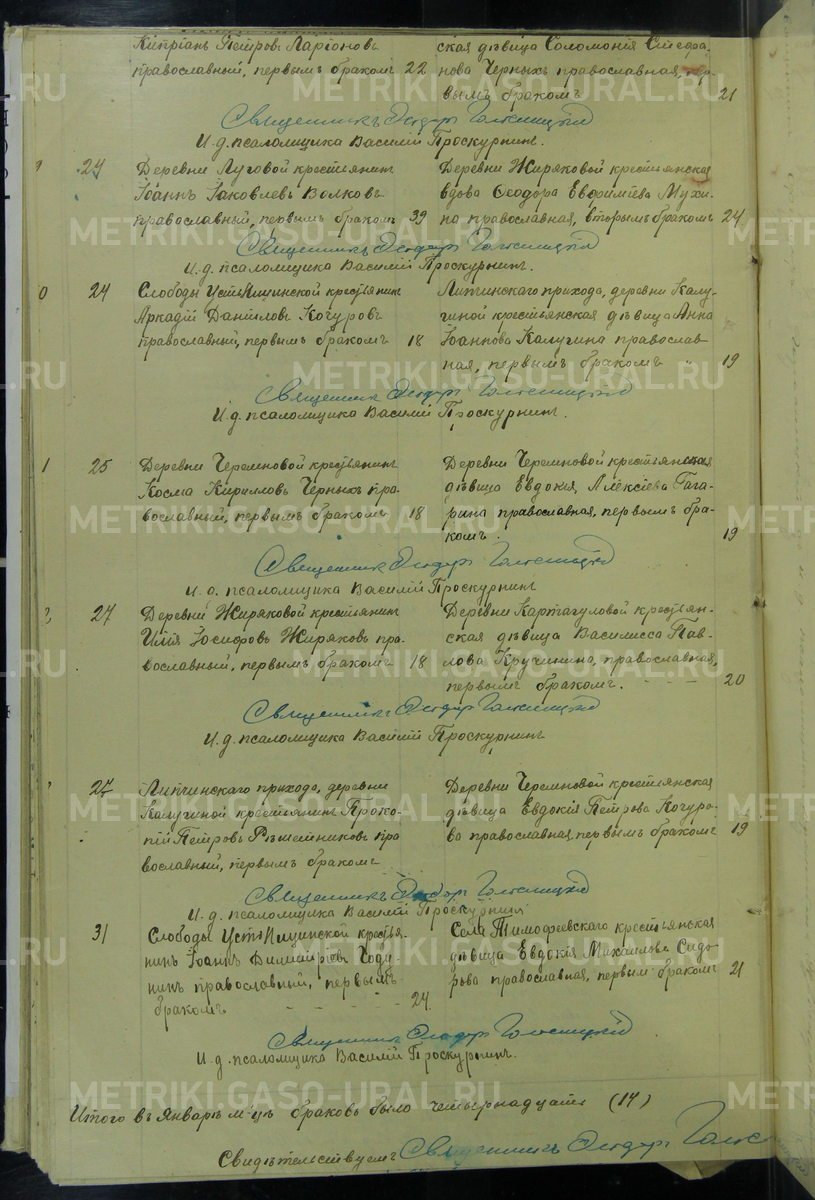 Кипріанъ Петровъ Ларіоновъ
православный, первымъ бракомъ 22
ская дѣвица Соломонія Стефа-
нова Черныхъ православная, пер-
вымъ бракомъ 21
Священникъ Ѳеодоръ
И.д. псаломщика Василій Проскурнинъ.
24 Деревни Луговой крестьянинъ
Іоаннъ Іаковлевъ Волковъ
православный, первымъ бракомъ 39
Деревни Жиряковой крестьянская
вдова Ѳеодора Евѳиміева Мухи-
на православная, вторымъ бракомъ 24
Священникъ Ѳеодоръ
И.д. псаломщика Василій Проскурнинъ.
0 24 Слободы Усть Ницинской крестьянинъ
Аркадій Даниловъ Кочуровъ
православный, первымъ бракомъ 18
Липчинскаго прихода, деревни Калу-
гиной крестьянская дѣвица Анна
Іоаннова Калугина православ-
ная, первымъ бракомъ " 19
Священникъ Ѳеодоръ
И.д. псаломщика Василій Проскурнинъ.
1 25 Деревни Черемновой крестьянинъ
Косма Кирилловъ Черныхъ пра-
вославный, первымъ бракомъ 18
Деревни Черемновой крестьянская
дѣвица Евдокія Алексіева Гага-
рина православная, первымъ бра-
комъ. 19
Священникъ Ѳеодоръ
И.д. псаломщика Василій Проскурнинъ
27 Деревни Жиряковой крестьянинъ
Илія Іосифовъ Жиряковъ пра-
вославный, первымъ бракомъ 18
Деревни Картагуловой крестьян-
ская дѣвица Василисса Пав-
лова Кручинина, православная,
первымъ бракомъ. 20
Священникъ Ѳеодоръ
И.д. псаломщика Василій Проскурнинъ
27 Липчинскаго прихода, деревни
Калугиной крестьянинъ Проко-
пій Петровъ Рѣшетниковъ пра
вославный, первымъ бракомъ
Деревни Черемновой крестьянская
дѣвица Евдокія Петрова Кочуро-
ва православная, первымъ бракомъ 19
Священникъ Ѳеодоръ
И.д. псаломщика Василій Проскурнинъ
31 Слободы Усть Ницинской крестья-
нинъ Іоаннъ Димитріевъ
православный, первымъ
бракомъ 24
Села Тимофеевскаго крестьянская
дѣвица Евдокія Михаилова Сидо-
рова православная, первымъ бракомъ 21
Священникъ Ѳеодоръ
И.д. псаломщика Василій Проскурнинъ.
Итого въ Январѣ м-цѣ браковъ было четырнадцать (14)
Свидѣтельствуемъ Священникъ Ѳеодоръ
METRIKI.GASO-URAL.RU